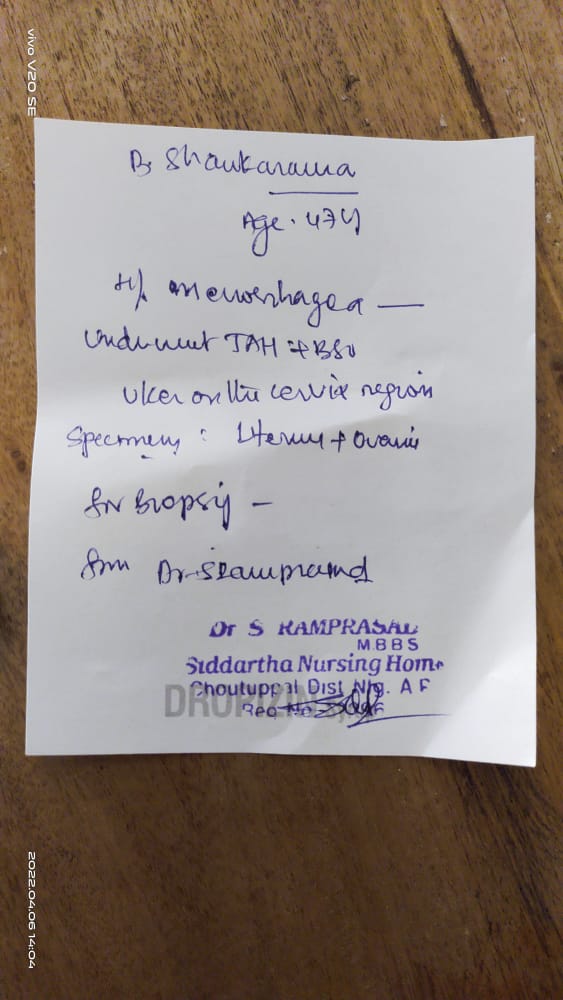 B. Shankaramma
Age. 47y
H/o menorrhagea —
Underwent TAH + BSO
Ulcer on the cervix region
Specimens : Uterus + Ovaries
for Biopsy —
from Dr. S Ramprasad
Dr S RAMPRASAD
M.B B S
Siddartha Nursing Home
Choutuppal Dist Nlg. A P
Reg No
vivo V20 SE
2022.04.06 14:04